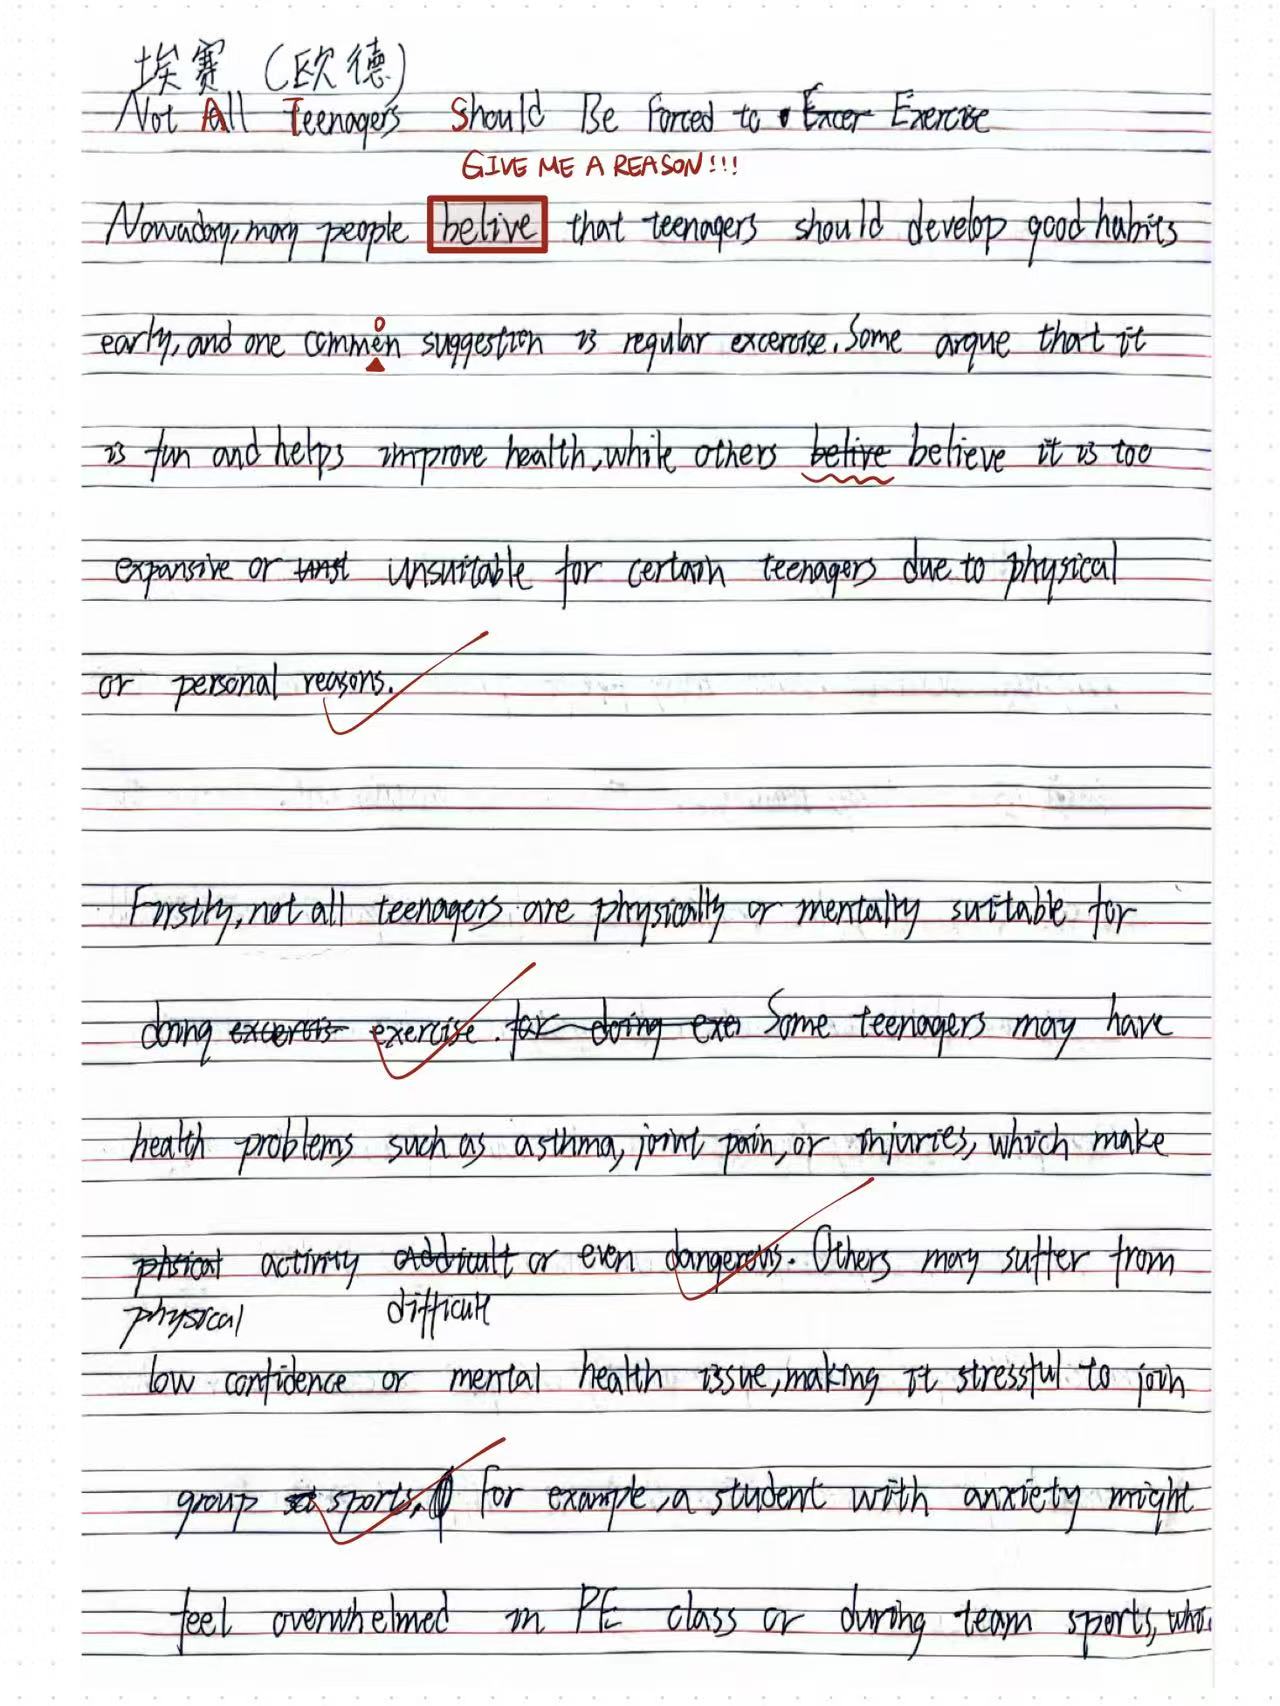 埃赛（欧德）
Not All Teenagers Should Be Forced to Excer Exercise
GIVE ME A REASON!!!
Nowaday, many people belive that teenagers should develop good habits
early, and one commen suggestion is regular excercise. Some argue that it
o
is fun and helps improve health, while others belive believe it is too
expansive or unst unsuitable for certain teenagers due to physical
or personal reasons.
Firstly, not all teenagers are physically or mentally suitable for
doing excercis exercise. for doing exe Some teenagers may have
health problems such as asthma, joint pain, or injuries, which make
phsical activity or even dangerous. Others may suffer from
physical difficult
low confidence or mental health issue, making it stressful to join
group sports. For example, a student with anxiety might
feel overwhelmed in PE class or during team sports,